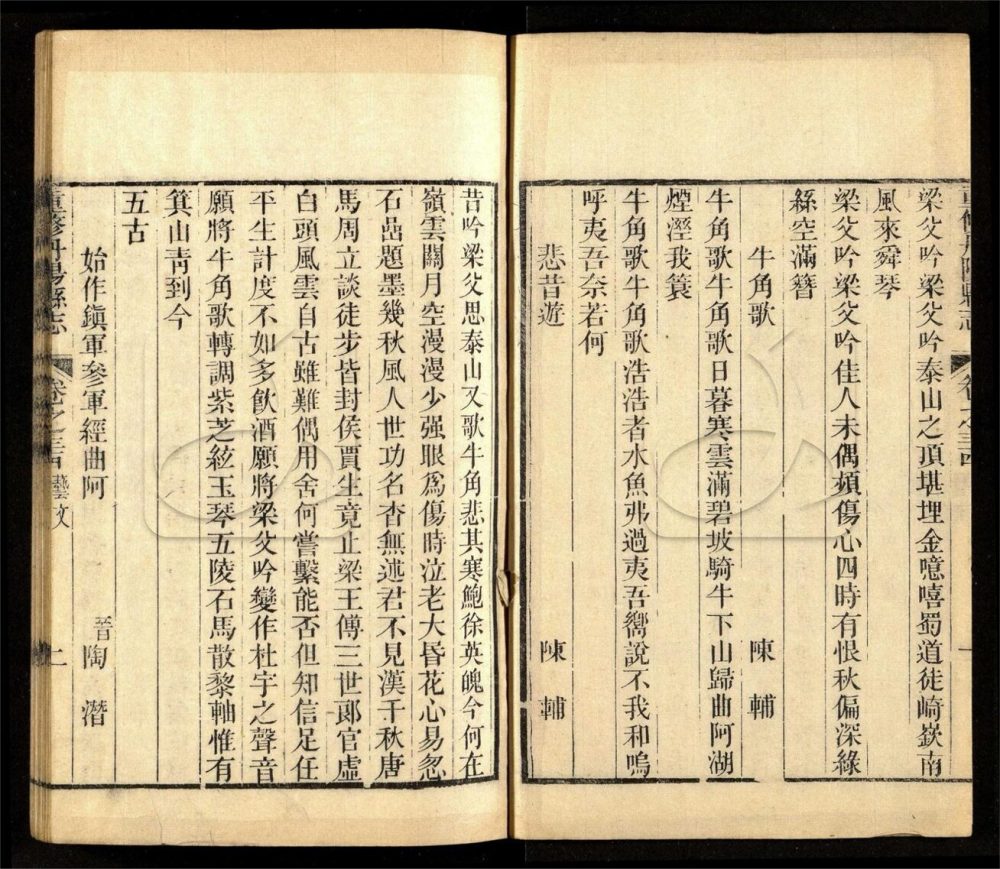 梁父吟梁父吟泰山之頂堪埋金噫嘻蜀道徒崎嶔南
風來舜琴
梁父吟梁父吟佳人未偶頻傷心四時有恨秋偏深綠
絲空滿簪
牛角歌 陳輔
牛角歌牛角歌日暮寒雲滿碧坡騎牛下山歸曲阿湖
煙溼我簑
牛角歌牛角歌浩浩者水魚弗過夷吾嚮說不我和嗚
呼夷吾奈若何
悲昔遊 陳輔
昔吟梁父思泰山又歌牛角悲其寒鮑徐英魄今何在
嶺雲關月空漫漫少强眼爲傷時泣老大昏花心易忽
石品題墨幾秋風人世功名杳無迹君不見漢千秋唐
馬周立談徒步皆封侯賈生竟止梁王傅三世郞官虛
白頭風雲自古雖難偶用舍何嘗繫能否但知信足任
平生計度不如多飮酒願將梁父吟變作杜宇之聲音
願將牛角歌轉調紫芝絃玉琴五陵石馬散黎軸惟有
箕山靑到今
五古
始作鎭軍參軍經曲阿 晉陶潛
重修丹陽縣志 卷之三四 藝文 二